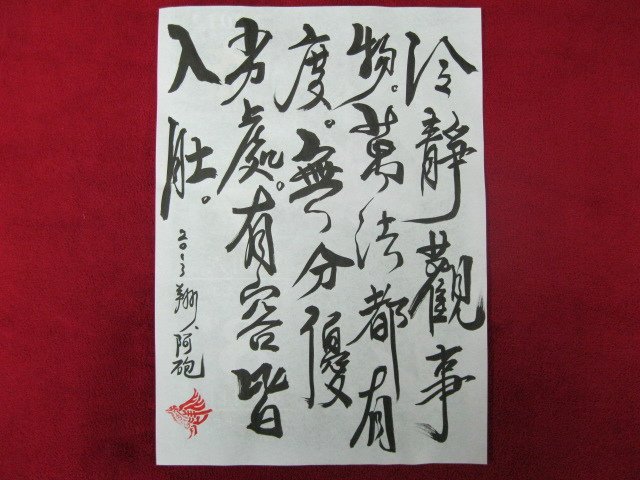 冷靜觀事
物。萬法都有
度。無分優
劣處。有容皆
入肚。
2013翔阿砲